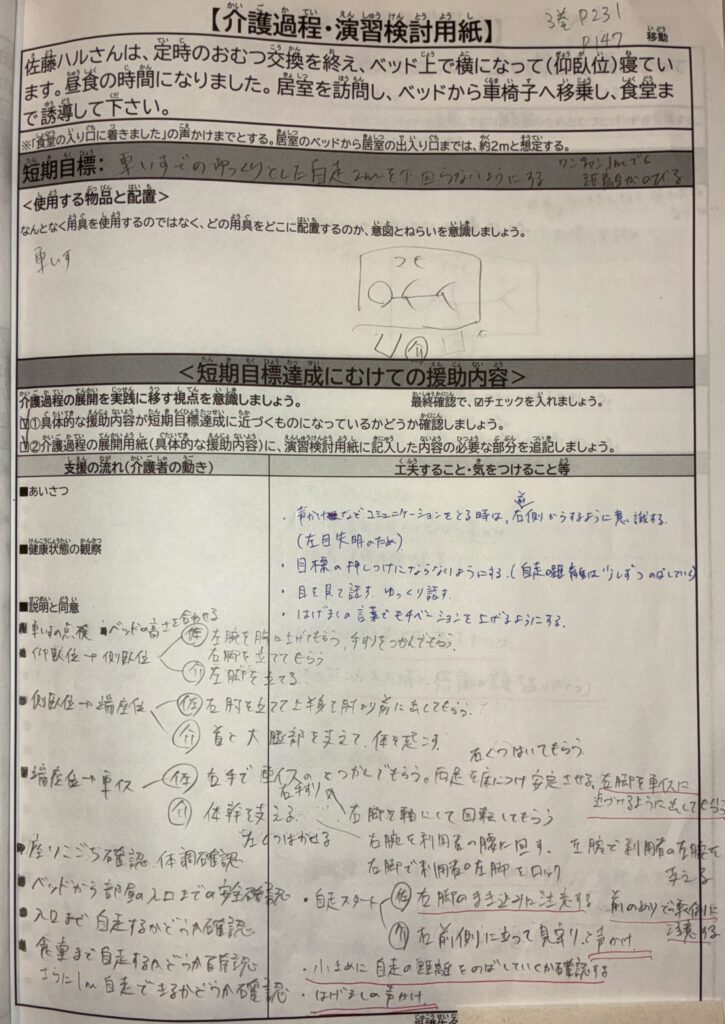 【介護過程・演習検討用紙】
3巻 P231
P147
移動
佐藤ハルさんは、定時のおむつ交換を終え、ベッド上で横になって(仰臥位)寝てい
ます。昼食の時間になりました。居室を訪問し、ベッドから車椅子へ移乗し、食堂ま
で誘導して下さい。
※「食堂の入り口に着きました」の声かけまでとする。居室のベッドから居室の出入り口までは、約2mと想定する。
短期目標: 車いすでのゆっくりとした自走2mを下回らないようにする
ワンチャン1mでも
距離がのびる
<使用する物品と配置>
なんとなく用具を使用するのではなく、どの用具をどこに配置するのか、意図とねらいを意識しましょう。
車いす
介
<短期目標達成にむけての援助内容>
介護過程の展開を実践に移す視点を意識しましょう。 最終確認で、☑チェックを入れましょう。
☑①具体的な援助内容が短期目標達成に近づくものになっているかどうか確認しましょう。
☑②介護過程の展開用紙(具体的な援助内容)に、演習検討用紙に記入した内容の必要な部分を追記しましょう。
支援の流れ(介護者の動き) 工夫すること・気をつけること等
■あいさつ
・声かけなどコミュニケーションをとる時は、右側からするように意識する。
前
(左目失明のため)
■健康状態の観察
・目標の押しつけにならないようにする。(自走の距離は少しずつのばしていく)
・目を見て話す。ゆっくり話す。
■説明と同意
・はげましの言葉でモチベーションを上げるようにする。
■車いすの点検 ■ベッドの高さを合わせる
■仰臥位→側臥位 佐 左腕を胸に上げてもらう、手すりをつかんでもらう。
右脚を立ててもらう
介 左脚を立てる
■側臥位→端座位 佐 右肘を立てて上半身を肘より前に出してもらう。
介 首と大腿部を支えて、体を起こす
右くつはいてもらう
■端座位→車イス 佐 右手で車イスの とつかんでもらう。両足を床につけ安定させる、右脚を車イスに
近づけるように出してもらう
右手すり
右脚を軸にして回転してもらう
介 体幹を支える
左くつはかせる
右腕を利用者の腰に回す。左腕で利用者の左腕を
支える
右脚で利用者の左脚をロック
■座りごこち確認、体調確認
■ベッドから部屋の入口までの安全確認
・自走スタート 佐 左脚のまき込みに注意する 前のめりでの転倒に
注意する
■入口まで自走するかどうか確認
介 右前側に立って見守り、声かけ
■食堂まで自走するかどうか確認
・小まめに自走の距離をのばしていくか確認する
さらに1m自走できるかどうか確認
・はげましの声かけ